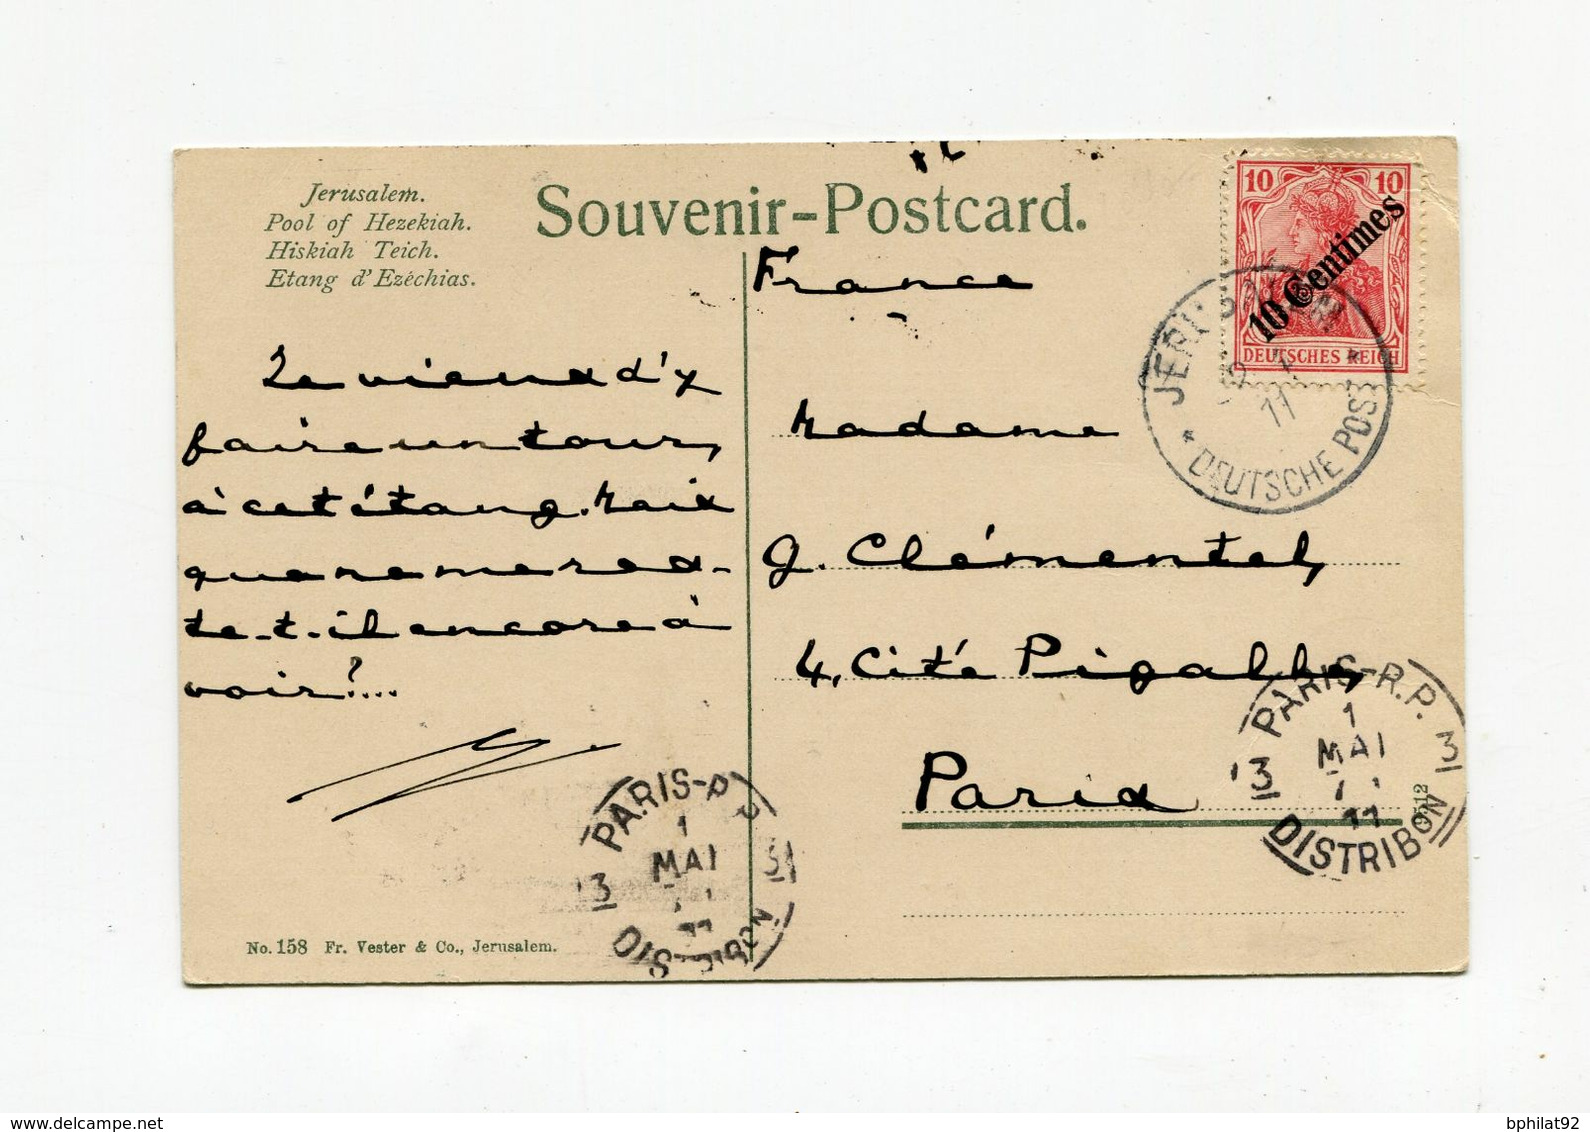 Jerusalem.
Pool of Hezekiah.
Hiskiah Teich.
Etang d'Ezéchias.
Souvenir-Postcard.
10 10
10 Centimes
DEUTSCHES REICH
JERUSALEM
11
* DEUTSCHE POST *
France
Je viens d'y
faire un tour,
à cet étang. Mais
que ne me res-
te-t-il encore à
voir?...
Madame
G. Clémentel,
4, Cité Pigalle,
Paris
PARIS-R.P.
3 1 3
MAI
11
DISTRIBON
PARIS-R.P.
3 1 3
MAI
11
DISTRIBON
9512
No. 158 Fr. Vester & Co., Jerusalem.
delcampe.net
bphilat92